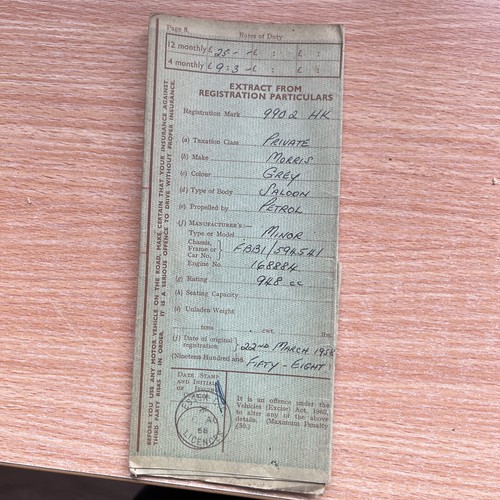 Page 8
Rates of Duty
12 monthly £ 25 - - £ : £ :
4 monthly £ 9 : 3 - £ : £ :
EXTRACT FROM
REGISTRATION PARTICULARS
Registration Mark 9902 HK
(a) Taxation Class PRIVATE
(b) Make MORRIS
(c) Colour GREY
(d) Type of Body SALOON
(e) Propelled by PETROL
(f) MANUFACTURER'S:—
Type or Model MINOR
Chassis, Frame or Car No. FBB1/594541
Engine No. 168884
(g) Rating 948 cc
(h) Seating Capacity
(i) Unladen Weight
tons cwt. lbs.
(j) Date of original registration } 22ND MARCH 1958
(Nineteen Hundred and FIFTY-EIGHT
DATE STAMP
AND INITIALS
OF ISSUING
ESSEX
68
LICENCES
It is an offence under the
Vehicles (Excise) Act, 1962,
to alter any of the above
details. (Maximum Penalty
£50.)
BEFORE YOU USE ANY MOTOR VEHICLE ON THE ROAD, MAKE CERTAIN THAT YOUR INSURANCE AGAINST
THIRD PARTY RISKS IS IN ORDER. IT IS A SERIOUS OFFENCE TO DRIVE WITHOUT PROPER INSURANCE.